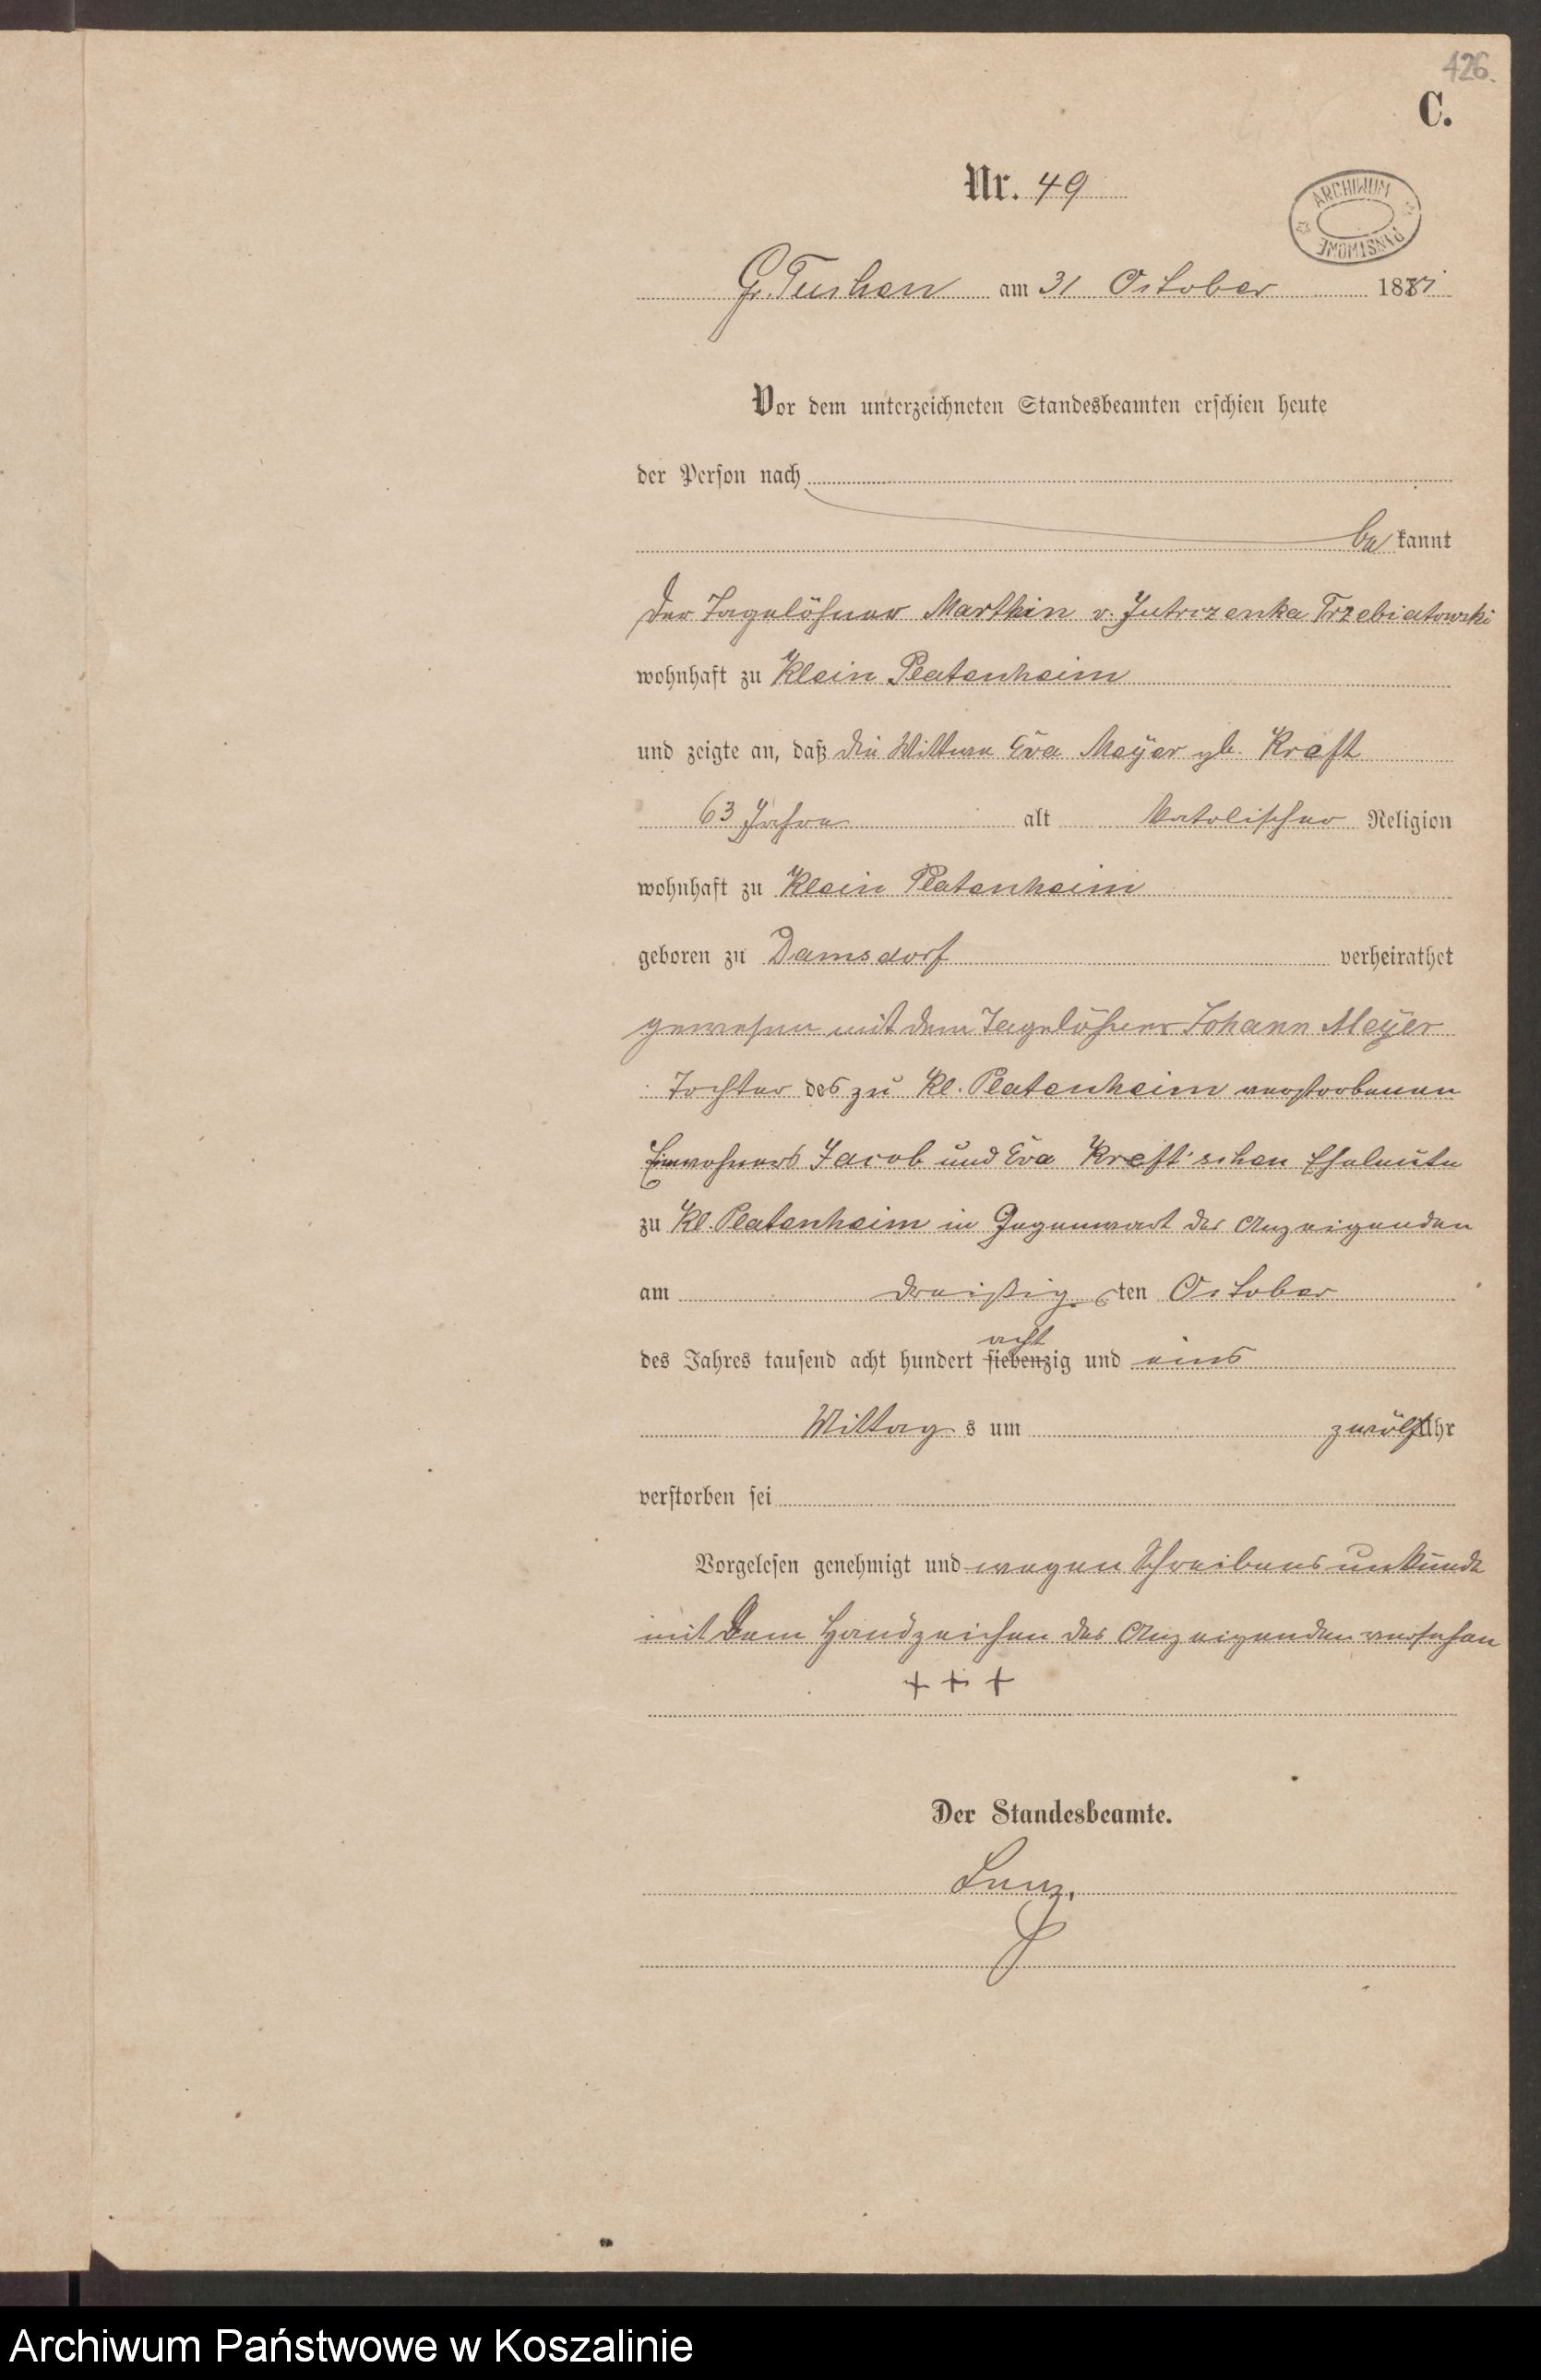 426.
C.
Nr. 49
ARCHIWUM PAŃSTWOWE
Gr. Tuchen am 31 October 1881
Vor dem unterzeichneten Standesbeamten erschien heute
der Person nach
be kannt
der Tagelöhner Marthin v. Jutrzenka Trzebiatowski
wohnhaft zu Klein Platenheim
und zeigte an, daß die Wittwe Eva Meÿer gb. Kreft
63 Jahre alt katolischer Religion
wohnhaft zu Klein Platenheim
geboren zu Damsdorf verheirathet
gewesen mit dem Tagelöhner Johann Meÿer
Tochter des zu Kl. Platenheim verstorbenen
Einwohners Jacob und Eva Kreft'schen Eheleute
zu Kl. Platenheim in Gegenwart des Anzeigenden
am dreißigsten October
des Jahres tausend acht hundert siebenzig und eins
acht
Mittag s um zwölf Uhr
verstorben sei
Vorgelesen genehmigt und wegen Schreibensunkunde
mit dem Handzeichen des Anzeigenden versehen
+ + +
Der Standesbeamte.
Archiwum Państwowe w Koszalinie